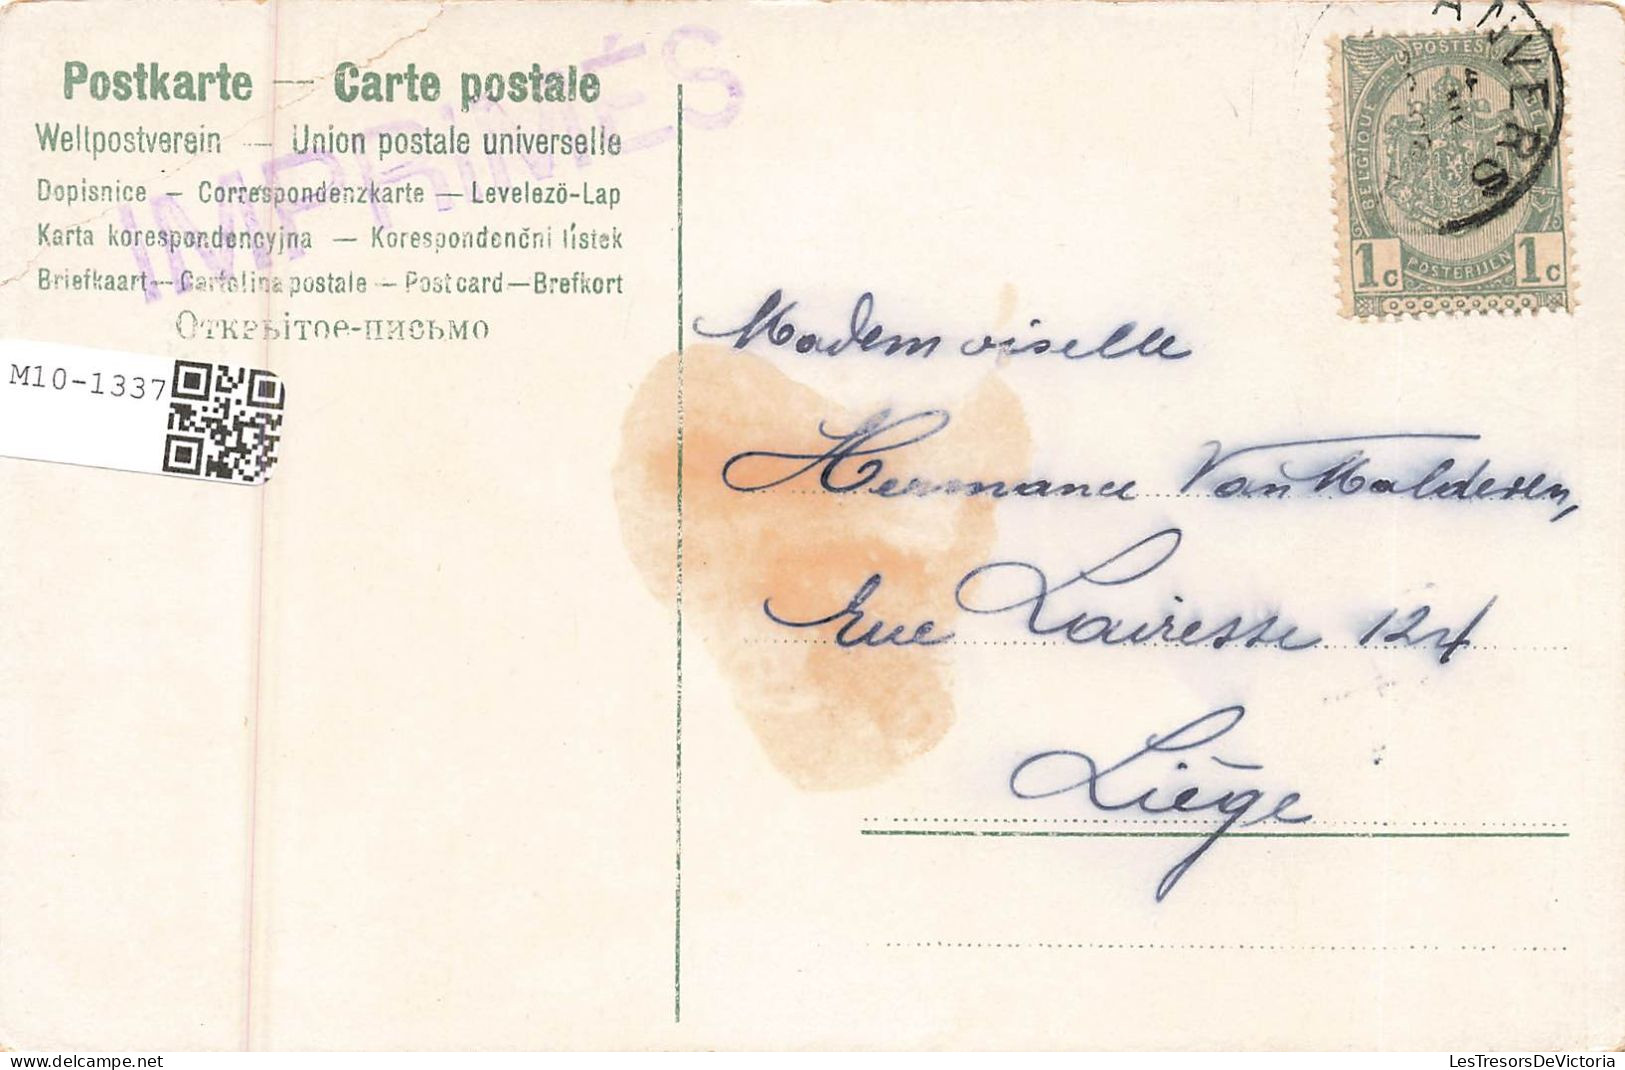 Postkarte — Carte postale
Weltpostverein — Union postale universelle
Dopisnice — Correspondenzkarte — Levelező-Lap
Karta korespondencyjna — Korespondenční lístek
Briefkaart — Cartolina postale — Post card — Brefkort
Открытое-письмо
IMPRIMÉS
M10-1337
ANVERS
POSTES
BELGIQUE
1c POSTERIJEN 1c
Mademoiselle
Hermance Van Malderen,
Rue Lairesse 124
Liège
LesTresorsDeVictoria.com